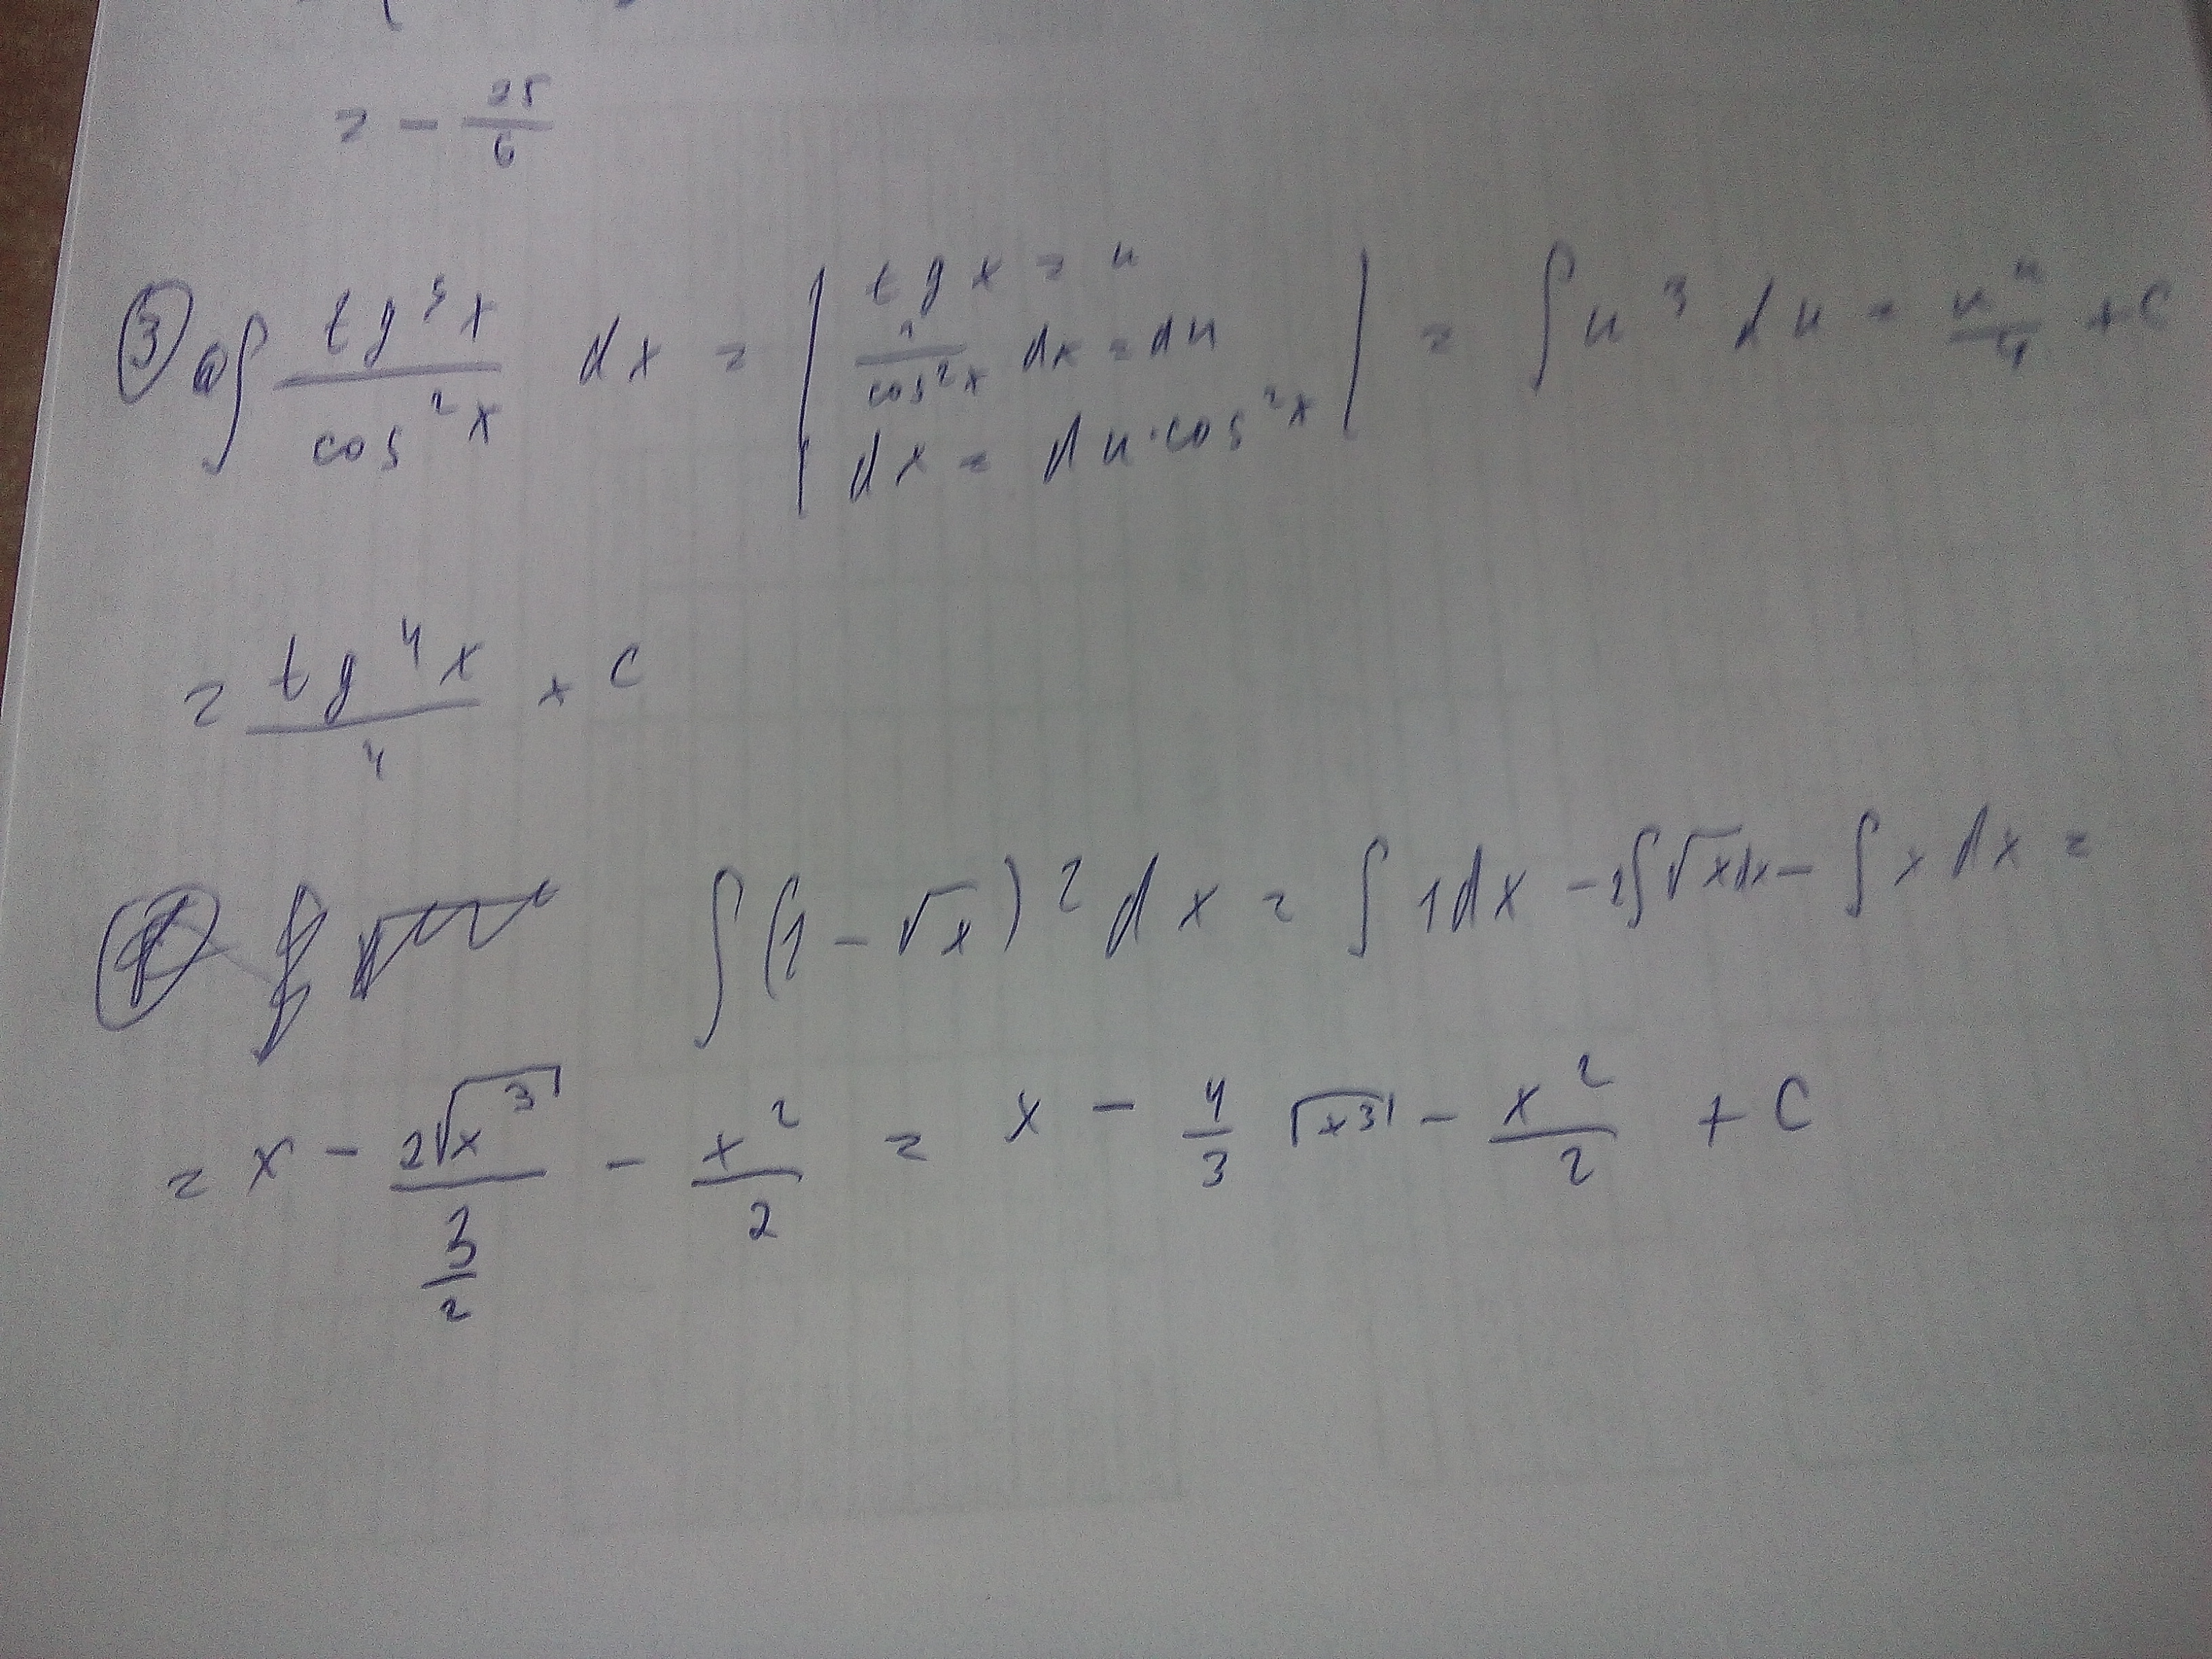 = - 25/6
③ a) ∫ tg³x / cos²x dx = | tg x = u ; 1/cos²x dx = du ; dx = du · cos²x | = ∫ u³ du = u⁴/4 + C
= tg⁴x / 4 + C
∫ (1 - √x)² dx = ∫ 1dx - 2∫ √x dx - ∫ x dx =
= x - 2√x³ / (3/2) - x²/2 = x - 4/3 √x³ - x²/2 + C